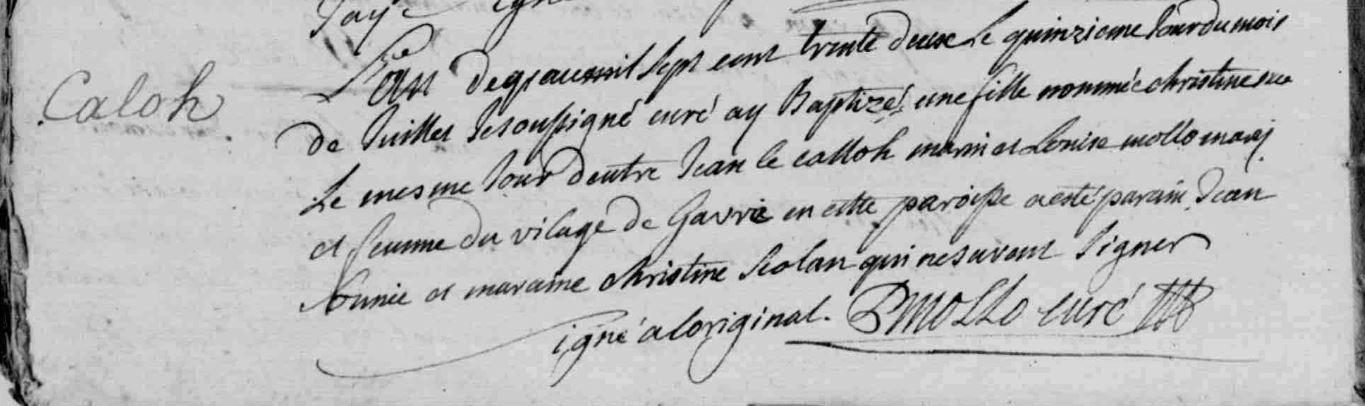 Caloh
L'an de grace mil sept cent trente deux Le quinzieme Jour du mois
de Juillet Je soussigné curé ay Baptizé une fille nommée christine née
Le mesme Jour d'entre Jean le calloh marin et Louise mollo mary
et femme du vilage de Gavre en cette paroisse a esté parain Jean
et maraine christine scolan qui ne savent signer
igné a loriginal. P mollo curé